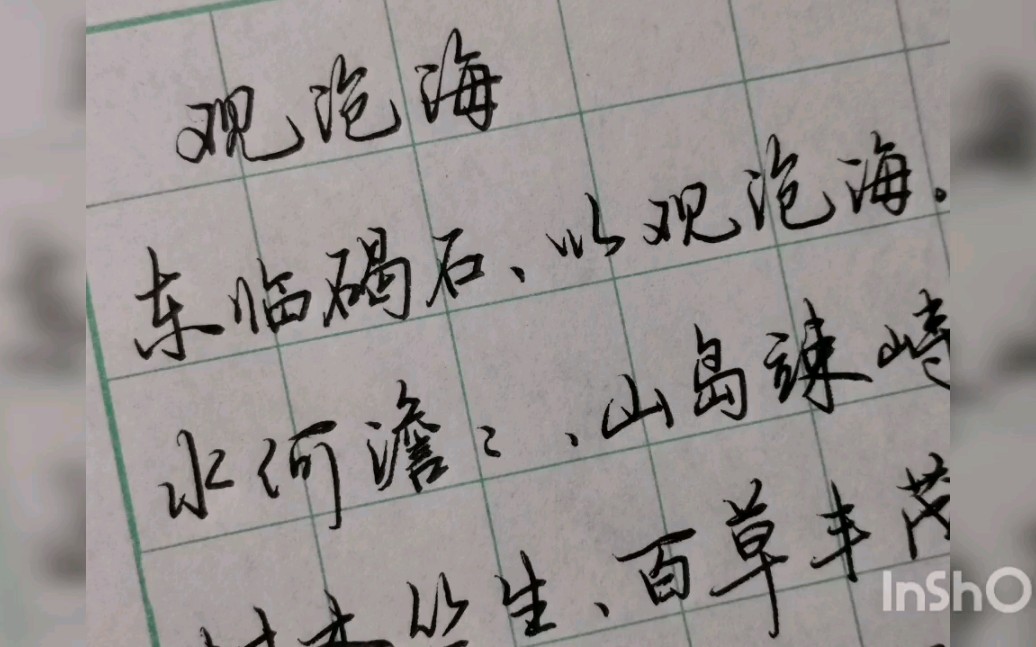 观沧海
东临碣石、以观沧海。
水何澹〻、山岛竦峙
树木丛生、百草丰茂
InShO